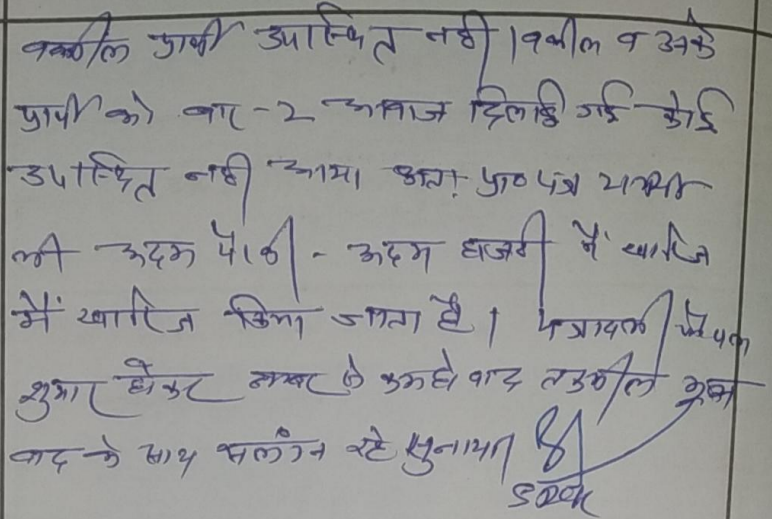 वकील प्रार्थी उपस्थित नही। वकील व उनके
प्रार्थी को बार-2 आवाज दिलाई गई कोई
उपस्थित नही आया अतः प्रा० पत्र
अदम पैरवी - अदम हाजरी में खारिज
में खारिज किया जाता है। पत्रावली फैसल
शुमार होकर नम्बर से कम हो बाद तकमील मूल
वाद के साथ सलंग्न रहे सुनाया